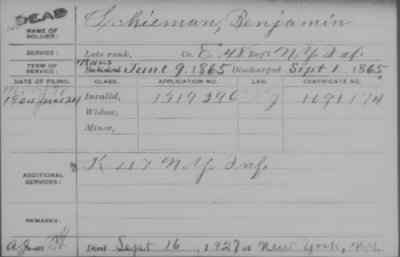 DEAD
NAME OF SOLDIER: Schieman, Benjamin
SERVICE: Late rank, Co. E. 48 Reg't N.Y. Inf.
TERM OF SERVICE: Enlisted June 9, 1865 Discharged Sept 1, 1865
DATE OF FILING. CLASS. APPLICATION NO. LAW. CERTIFICATE NO.
1904 June 24 Invalid, 1319296 1091174
Widow,
Minor,
ADDITIONAL SERVICES: K 117 N.Y. Inf
REMARKS:
Died Sept 16, 1927 at New York, N.Y.